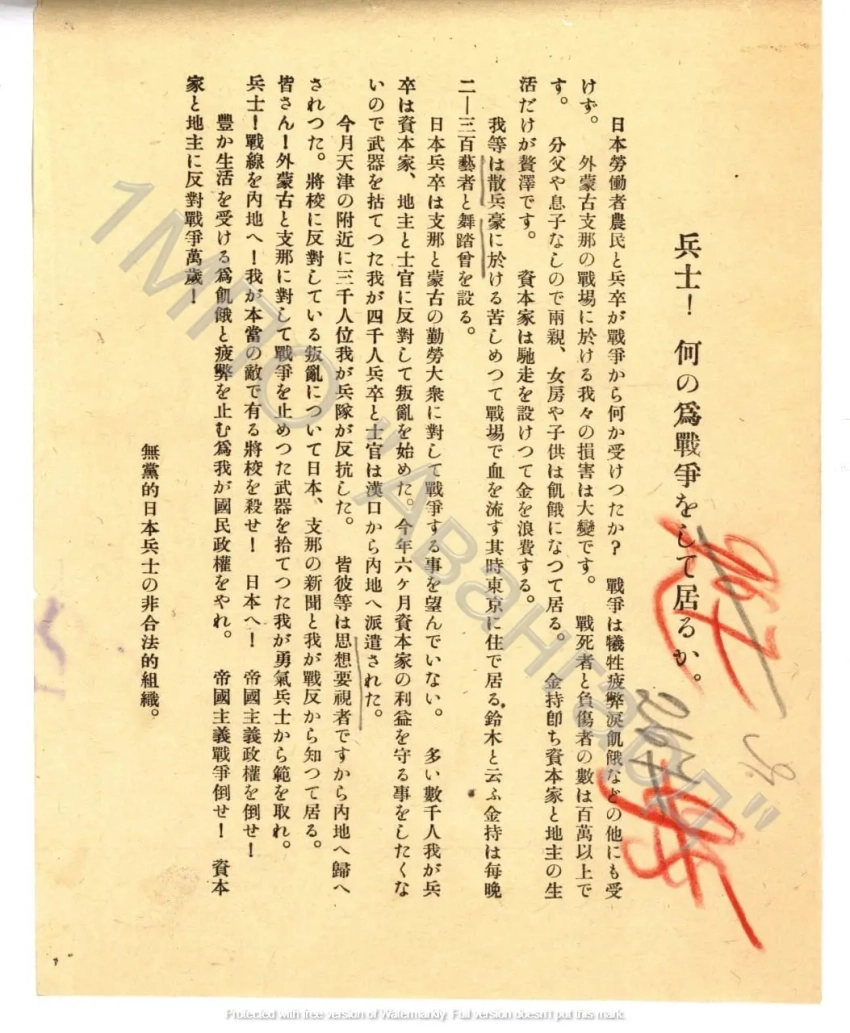 兵士！何の爲戰爭をして居るか。
日本勞働者農民と兵卒が戰爭から何か受けつたか？　戰爭は犧牲疲弊淚飢餓などの他にも受
けず。　外蒙古支那の戰場に於ける我々の損害は大變です。　戰死者と負傷者の數は百萬以上で
す。　分父や息子なしので兩親、女房や子供は飢餓になつて居る。　金持卽ち資本家と地主の生
活だけが贅澤です。　資本家は馳走を設けつて金を浪費する。
我等は散兵豪に於ける苦しめつて戰場で血を流す其時東京に住で居る鈴木と云ふ金持は每晩
二―三百藝者と舞踏曾を設る。
日本兵卒は支那と蒙古の勤勞大衆に對して戰爭する事を望んでいない。　多い數千人我が兵
卒は資本家、地主と士官に反對して叛亂を始めた。今年六ケ月資本家の利益を守る事をしたくな
いので武器を拾てつた我が四千人兵卒と士官は漢口から內地へ派遣された。
今月天津の附近に三千人位我が兵隊が反抗した。　皆彼等は思想要視者ですから內地へ歸へ
されつた。將校に反對している叛亂について日本、支那の新聞と我が戰反から知つて居る。
皆さん！外蒙古と支那に對して戰爭を止めつた武器を拾てつた我が勇氣兵士から範を取れ。
兵士！戰線を內地へ！我が本當の敵で有る將校を殺せ！　日本へ！　帝國主義政權を倒せ！
豐か生活を受ける爲飢餓と疲弊を止む爲我が國民政權をやれ。　帝國主義戰爭倒せ！　資本
家と地主に反對戰爭萬歲！
無黨的日本兵士の非合法的組織。
Protected with free version of Watermarkly. Full version doesn't put this mark.